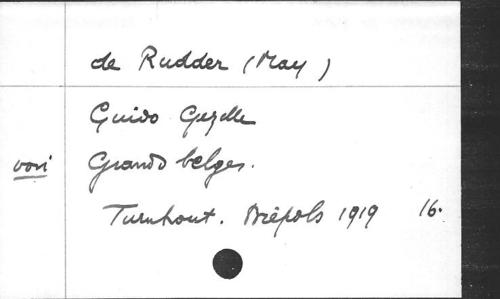 de Rudder (May)
Guido Gezelle
voir Grands belges.
Turnhout. Brépols 1919 16.